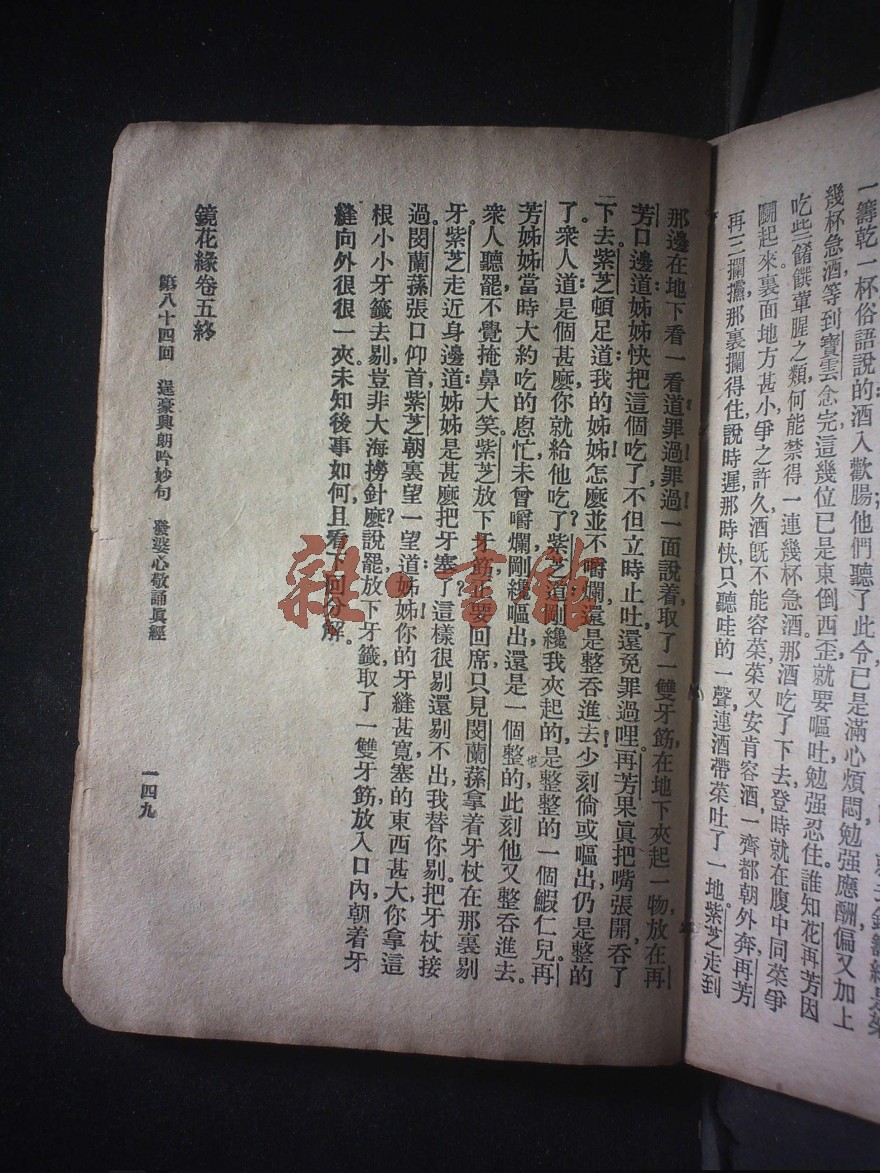 一籌乾一杯俗語說的酒入歡腸他們聽了此令已是滿心煩悶勉强應酬,偏又加上
幾杯急酒,等到寶雲念完這幾位已是東倒西歪,就要嘔吐勉强忍住。誰知花再芳因
吃些餚饌葷腥之類,何能禁得一連幾杯急酒,那酒吃了下去,登時就在腹中同菜爭
鬭起來,裏面地方甚小,爭之許久,酒旣不能容菜,菜又安肯容酒,一齊都朝外奔,再芳
再三攔擋,那裏攔得住,說時遲那時快,只聽哇的一聲,連酒帶菜吐了一地。紫芝走到
那邊,在地下看一看道:罪過!罪過!一面說着,取了一雙牙筯,在地下夾起一物,放在再
芳口邊道:姊姊快把這個吃了,不但立時止吐,還免罪過哩。再芳果眞把嘴張開,吞了
下去。紫芝頓足道:我的姊姊!怎麼並不嚼爛,還是整吞進去!少刻倘或嘔出,仍是整的
了。衆人道:是個甚麼,你就給他吃了?紫芝道:剛纔我夾起的,是整整的一個鰕仁兒,再
芳姊姊當時大約吃的悤忙,未曾嚼爛,剛纔嘔出,還是一個整的,此刻他又整吞進去。
衆人聽罷,不覺掩鼻大笑。紫芝放下牙筯,正要回席,只見閔蘭蓀拿着牙杖在那裏剔
牙。紫芝走近身邊道:姊姊是甚麼把牙塞了?這樣很剔,還剔不出,我替你剔,把牙杖接
過。閔蘭蓀張口仰首,紫芝朝裏望一望道:姊姊!你的牙縫甚寬,塞的東西甚大,你拿這
根小小牙籤去剔,豈非大海撈針麼?說罷,放下牙籤,取了一雙牙筯,放入口內,朝着牙
縫向外很很一夾。未知後事如何,且看下回分解。
鏡花緣卷五終
第八十四回 逞豪興朗吟妙句 發婆心敬誦眞經
一四九
雜·書館